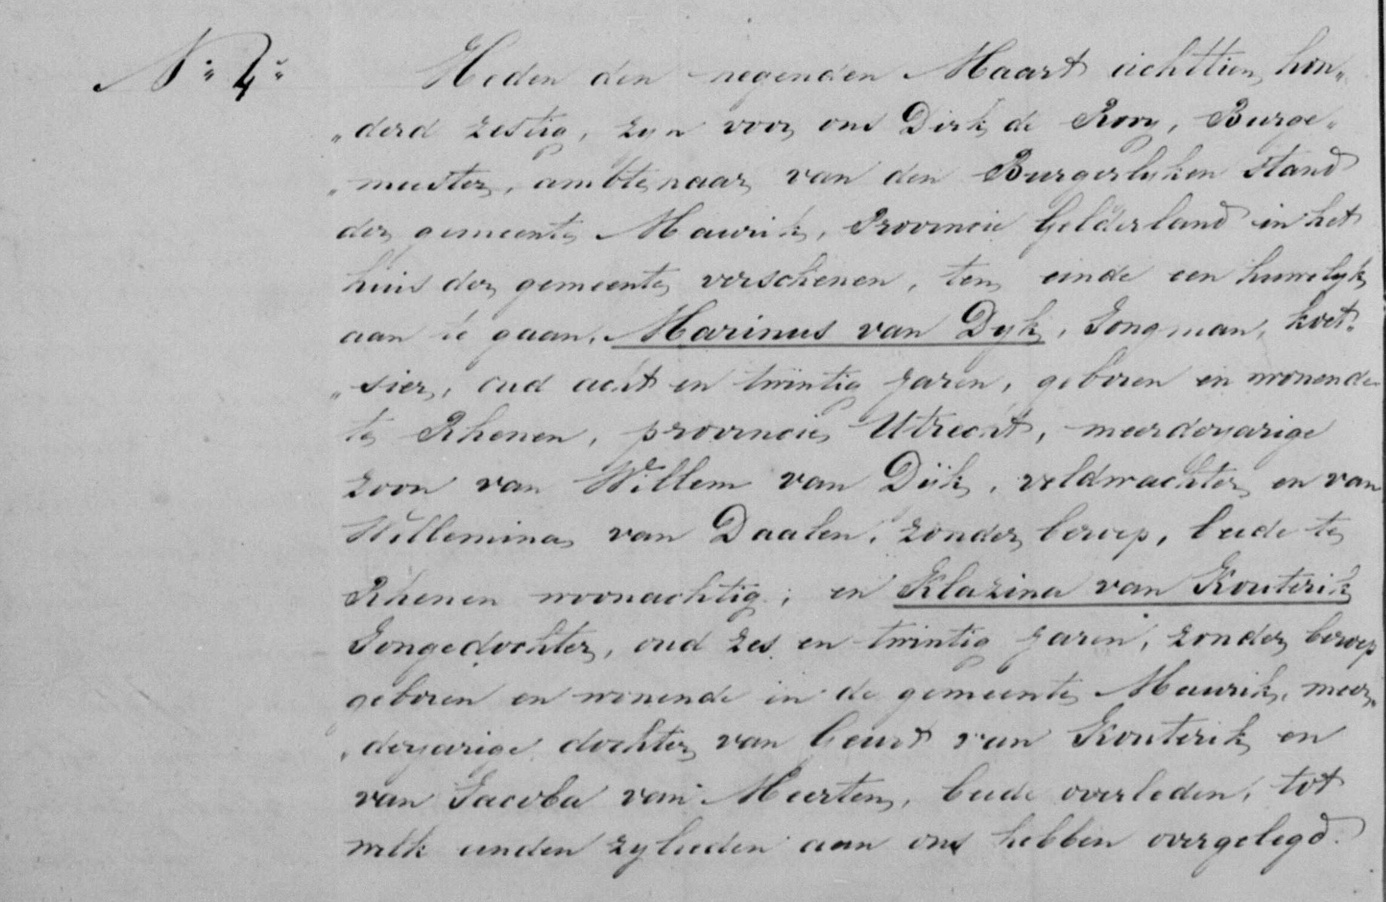 N° 4.
Heden den negenden Maart achttien hon„
„derd zestig, zyn voor ons Dirk de Rooy, Burge„
„meester, ambtenaar van den Burgerlyken Stand
der gemeente Maurik, Provincie Gelderland in het
huis der gemeente verschenen, ten einde een huwelyk
aan te gaan, Marinus van Dyk, Jongman, koet„
„sier, oud acht en twintig jaren, geboren en wonende
te Rhenen, provincie Utrecht, meerderjarige
zoon van Willem van Dijk, veldwachter en van
Willemina van Daalen, zonder beroep, beide te
Rhenen woonachtig; en Klazina van Kouterik
Jongedochter, oud zes en twintig jaren, zonder beroep
geboren en wonende in de gemeente Maurik, meer„
„derjarige dochter van Geurt van Kouterik en
van Jacoba van Meerten, beide overleden, tot
welk einden zylieden aan ons hebben overgelegd.